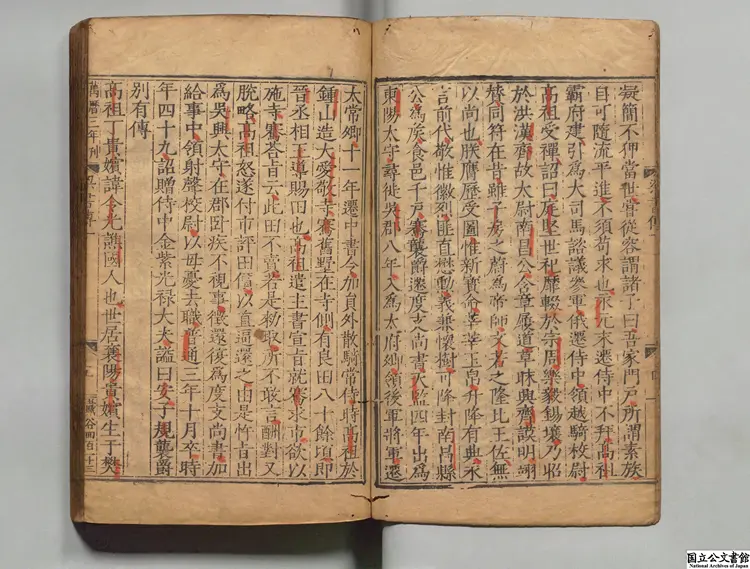 梁書傳一
四
凝簡不狎當世嘗從容謂諸子曰吾家門戶所謂素族
自可隨流平進不須苟求也永元末遷侍中不拜高祖
霸府建引爲大司馬諮議參軍俄遷侍中領越騎校尉
高祖受禪詔曰庭堅世祀靡輟於宗周樂毅錫壤乃昭
於洪漢齊故太尉南昌公含章履道草昧興齊謨明翊
贊同符在昔雖子房之蔚爲帝師文若之隆比王佐無
以尚也朕膺歷受圖惟新寶命莘莘玉帛升降有典永
言前代敬惟徽烈匪直懋勳義兼懷樹可降封南昌縣
公爲侯食邑千戶騫襲爵遷度支尚書天監四年出爲
東陽太守尋徙吳郡八年入爲太府卿領後軍將軍遷
太常卿十一年遷中書令加員外散騎常侍時高祖於
鍾山造大愛敬寺騫舊墅在寺側有良田八十餘頃即
晉丞相王導賜田也高祖遣主書宣旨就騫求市欲以
施寺騫荅旨云此田不賣若是勑取所不敢言酬對又
脫略高祖怒遂付市評田價以直逼還之由是忤旨出
爲吳興太守在郡臥疾不視事徵還復爲度支尚書加
給事中領射聲校尉以母憂去職普通三年十月卒時
年四十九詔贈侍中金紫光祿大夫諡曰安子規襲爵
別有傳
高祖丁貴嬪諱令光譙國人也世居襄陽貴嬪生于樊
萬曆三年刊
梁書傳一
五
国立公文書館
National Archives of Japan